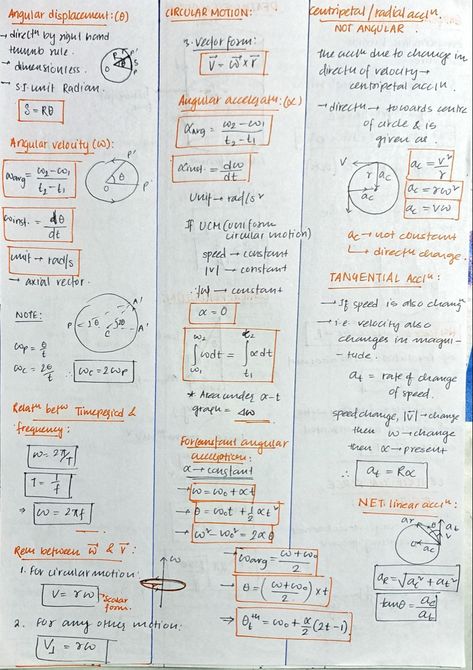 Angular displacement: (θ)
→ directⁿ by right hand
thumb rule.
→ dimensionless.
→ SI unit Radian.
S = Rθ
Angular velocity (ω):
ωavg = ω₂-ω₁ / t₂-t₁
ωinst. = dθ / dt
unit → rad/s
→ axial vector.
NOTE:
ωp = θ / t
ωc = 2θ / t
∴ ωc = 2ωp
Relatⁿ betⁿ Timeperiod &
frequency:
ω = 2π/T
T = 1/f
⇒ ω = 2πf
Relⁿ between ω⃗ & v⃗ :
1. For circular motion:
V = rω
→ Scalar
form.
2. For any other motion:
V⊥ = rω
CIRCULAR MOTION:
3. Vector form:
V⃗ = ω⃗ × r⃗
Angular acceleratⁿ: (α)
αavg = ω₂-ω₁ / t₂-t₁
αinst. = dω / dt
Unit → rad/s²
If UCM (uniform
circular motion)
speed → constant
|v| → constant
∴ |ω| → constant
α = 0
∫ω₁^ω₂ ωdt = ∫t₁^t₂ αdt
* Area under α-t
graph = Δω
For constant angular
α → constant
→ ω = ω₀ + αt
→ θ = ω₀t + 1/2 αt²
→ ω² - ω₀² = 2αθ
→ ωavg = ω + ω₀ / 2
⇒ θ = (ω + ω₀ / 2) × t
⇒ θt^th = ω₀ + α/2 (2t-1)
Centripetal / radial accⁿ.
NOT ANGULAR.
The accⁿ due to change in
directⁿ of velocity →
centripetal accⁿ.
→ directⁿ → towards centre
of circle & is
given as.
ac = v² / r
ac = rω²
ac = vω
ac → not constant
↳ directⁿ change.
TANGENTIAL Accⁿ:
→ If speed is also chang
→ i.e. velocity also
changes in magni-
tude.
at = rate of change
of speed.
speed change, |v| → change
then ω → change
then α → present
∴ at = Rα
NET linear accⁿ:
aR = √ac² + at²
tanθ = ac / at